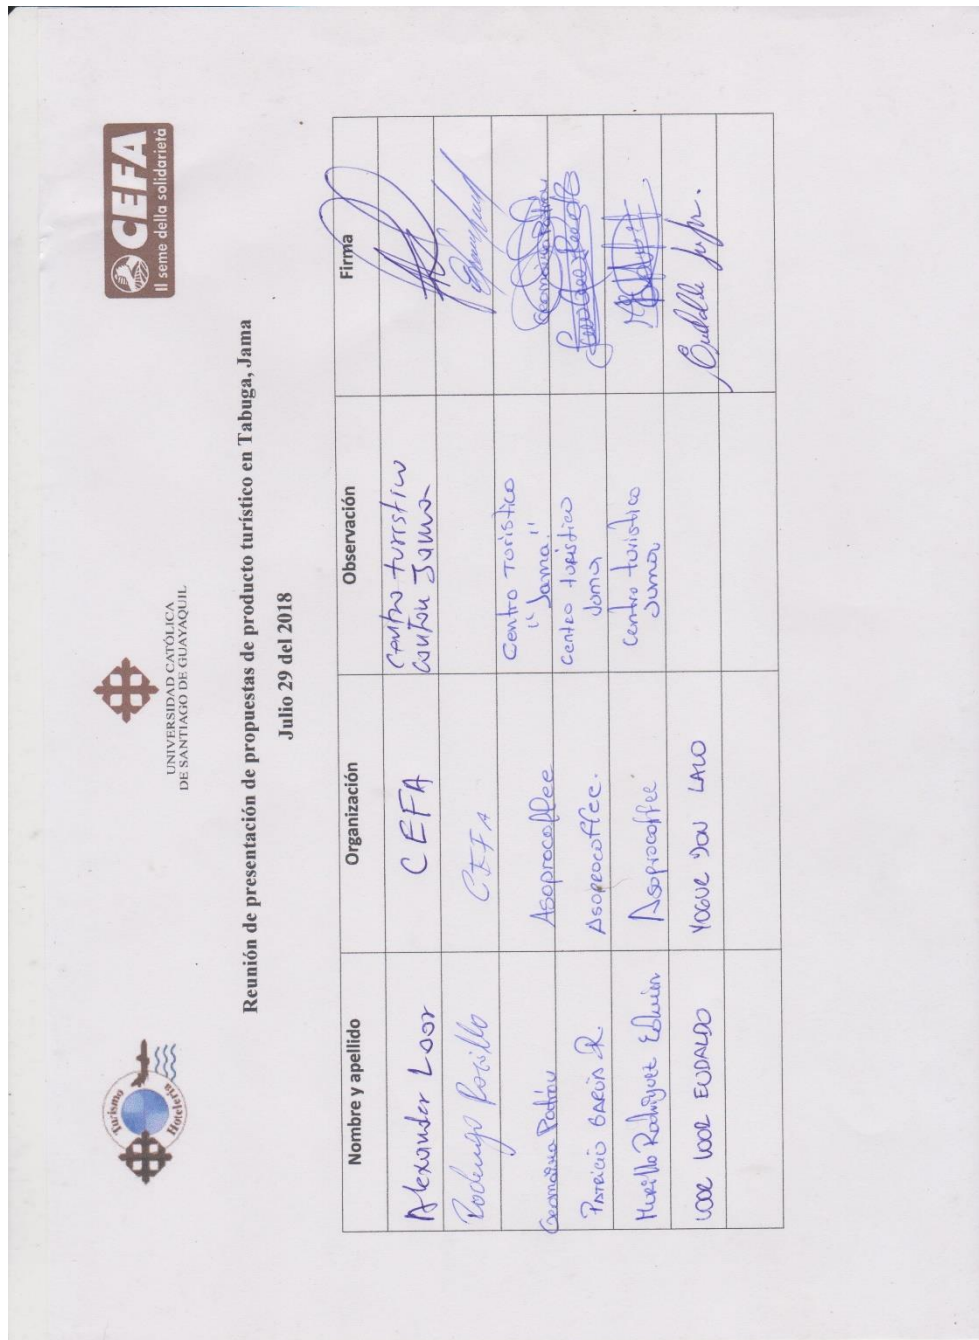 Turismo
Hotelería
UNIVERSIDAD CATÓLICA
DE SANTIAGO DE GUAYAQUIL
CEFA
Il seme della solidarietà
Reunión de presentación de propuestas de producto turístico en Tabuga, Jama
Julio 29 del 2018
Nombre y apellido Organización Observación Firma
Alexander Loor CEFA Centro turistico
Canton Jama
Rodrigo CEFA
Padrón Asoprocoffee Centro Turistico
"Jama"
PATRICIO Asoprocoffee. Centro turistico
Jama
Murillo Rodriguez Edwin Asoprocoffee Centro turistico
Jama
LOOR LOOR EUDALDO YOGUR DON LALO